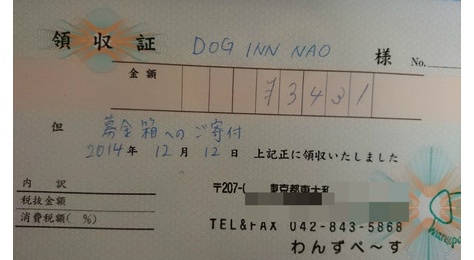 領収証 DOG INN NAO 様 No.
金額 ¥3431
但 募金箱へのご寄付
2014年 12月 12日 上記正に領収いたしました
内訳
税抜金額
消費税額( %)
〒207-0
東京都東大和
TEL&FAX 042-843-5868
わんずぺ〜す